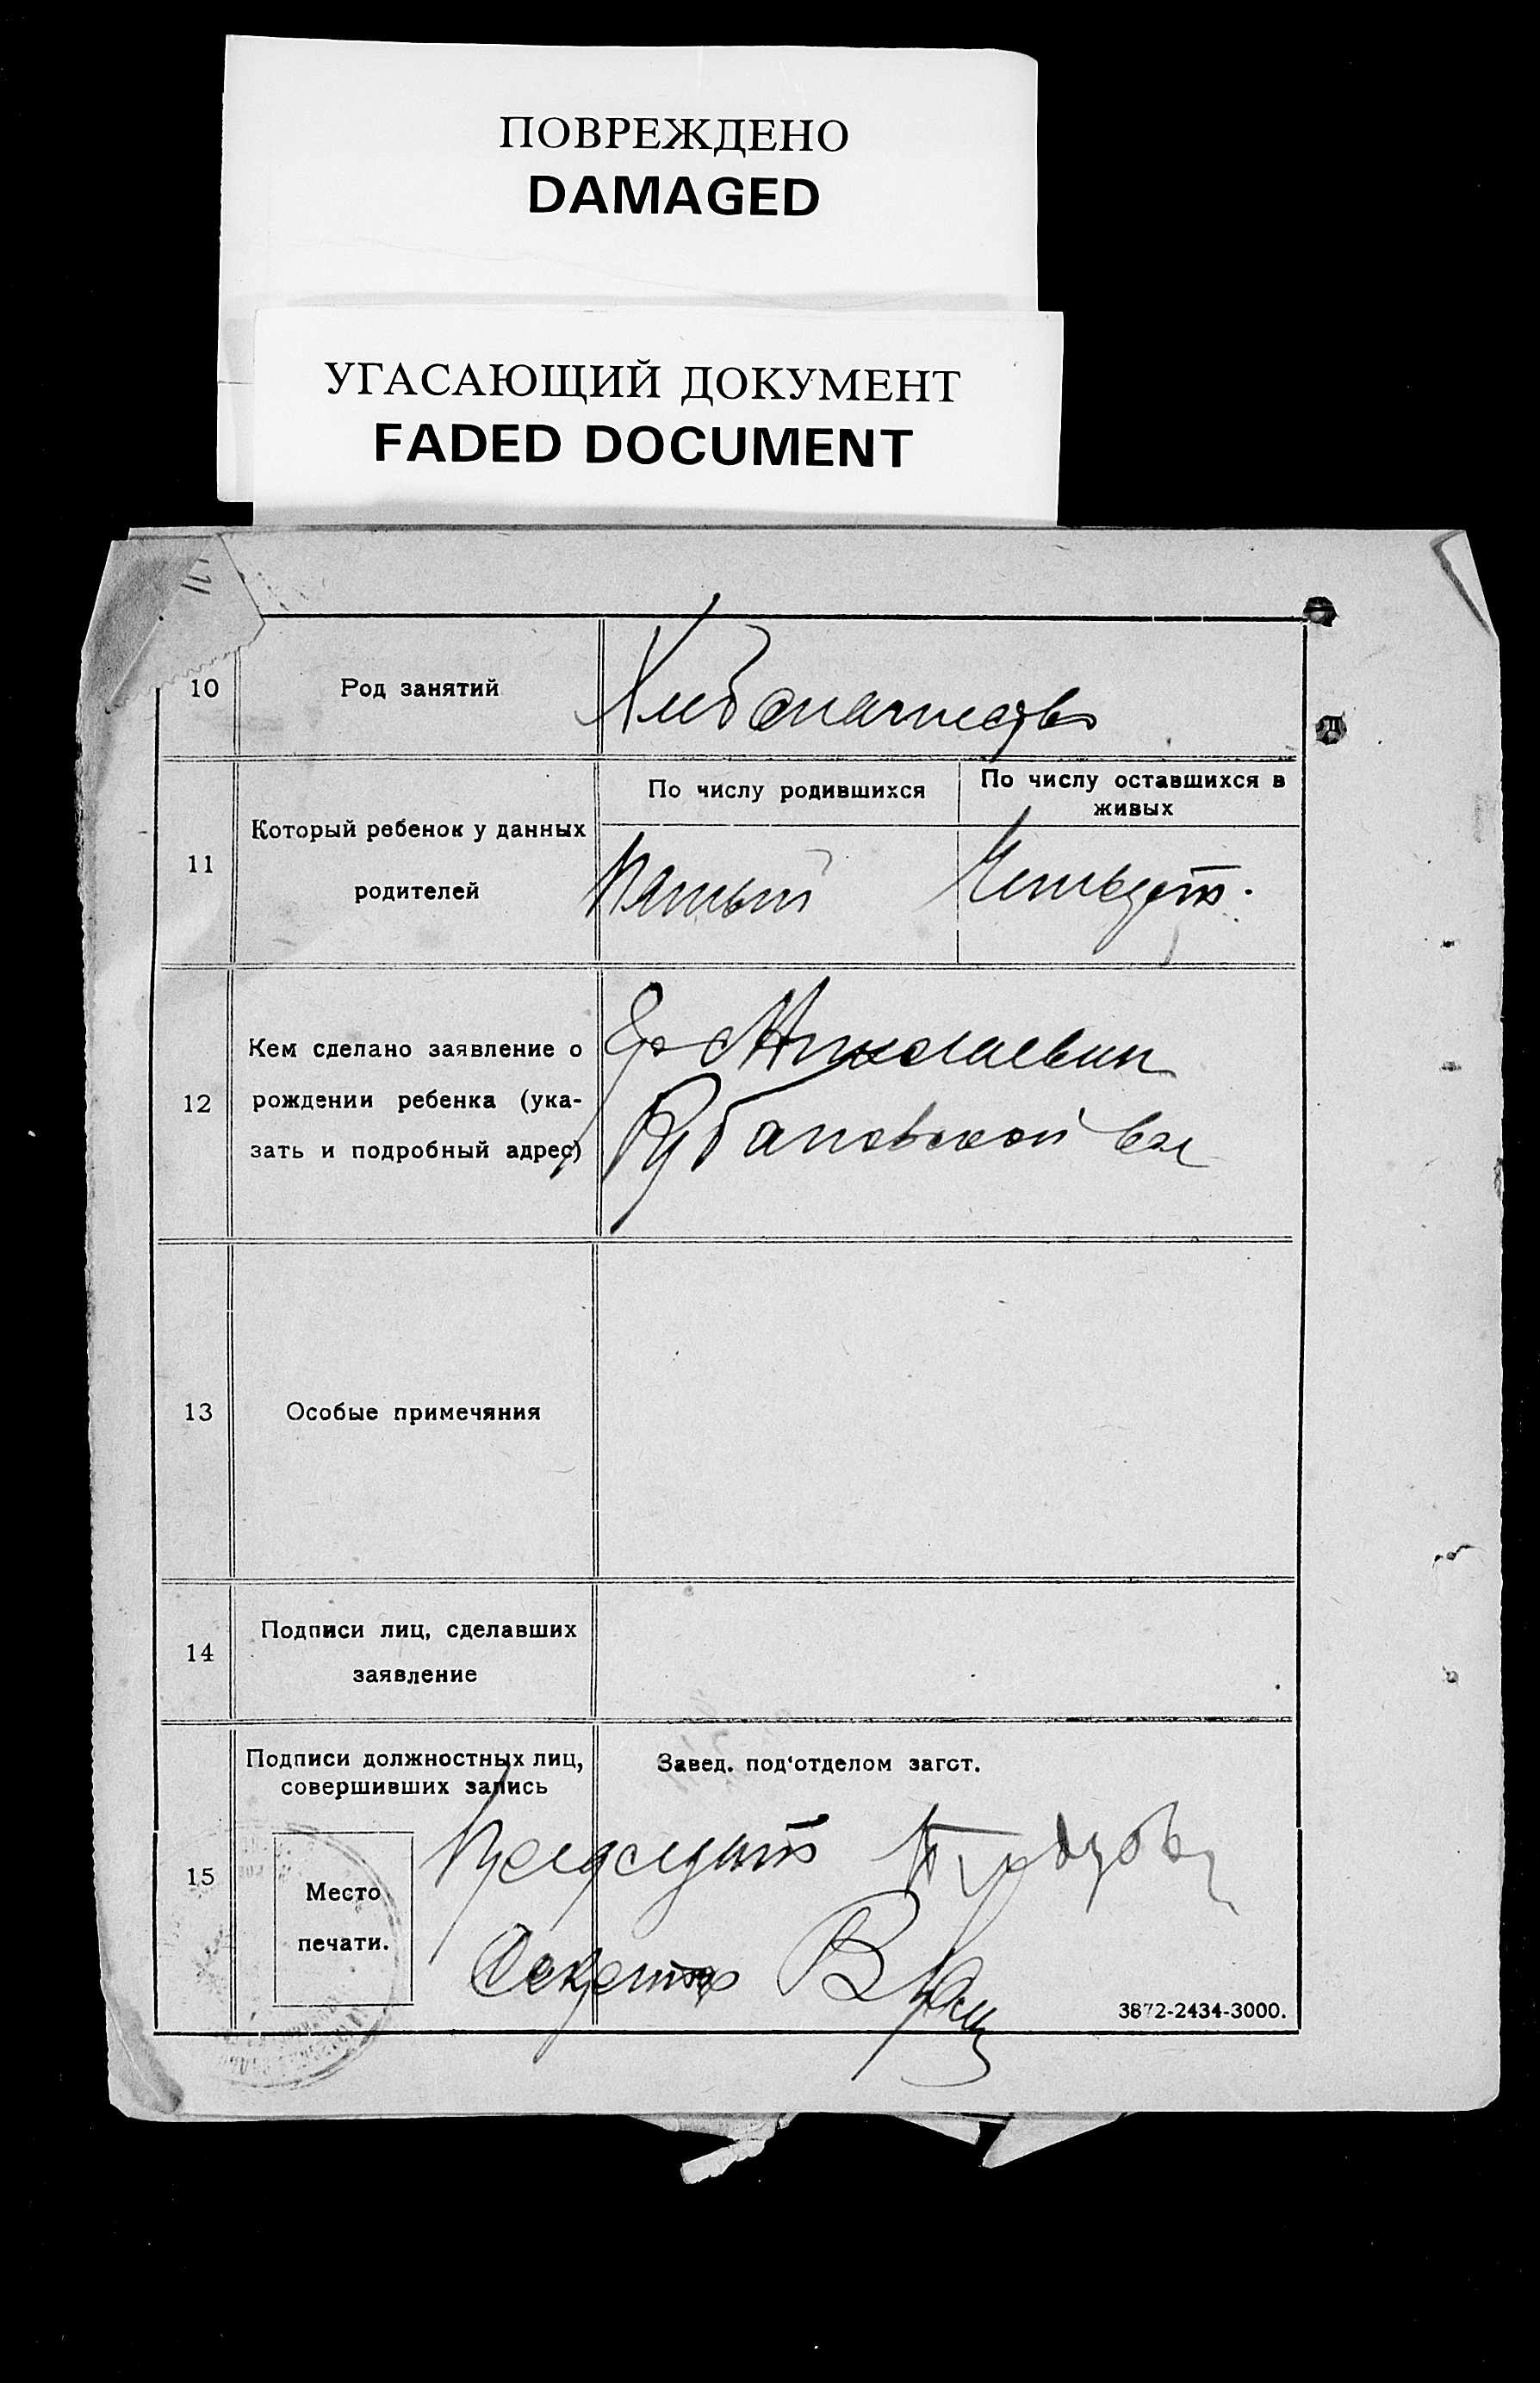 ПОВРЕЖДЕНО
DAMAGED
УГАСАЮЩИЙ ДОКУМЕНТ
FADED DOCUMENT
10
Род занятий
Хлебопашество
11
Который ребенок у данных
родителей
По числу родившихся
По числу оставшихся в
живых
Пятый
12
Кем сделано заявление о
рождении ребенка (ука-
зать и подробный адрес)
Николаевки
Рубановской вол
13
Особые примечяния
14
Подписи лиц, сделавших
заявление
15
Подписи должностных лиц,
совершивших запись
Завед. под‘отделом загст.
Место
печати.
Председат
Секретар
3872-2434-3000.